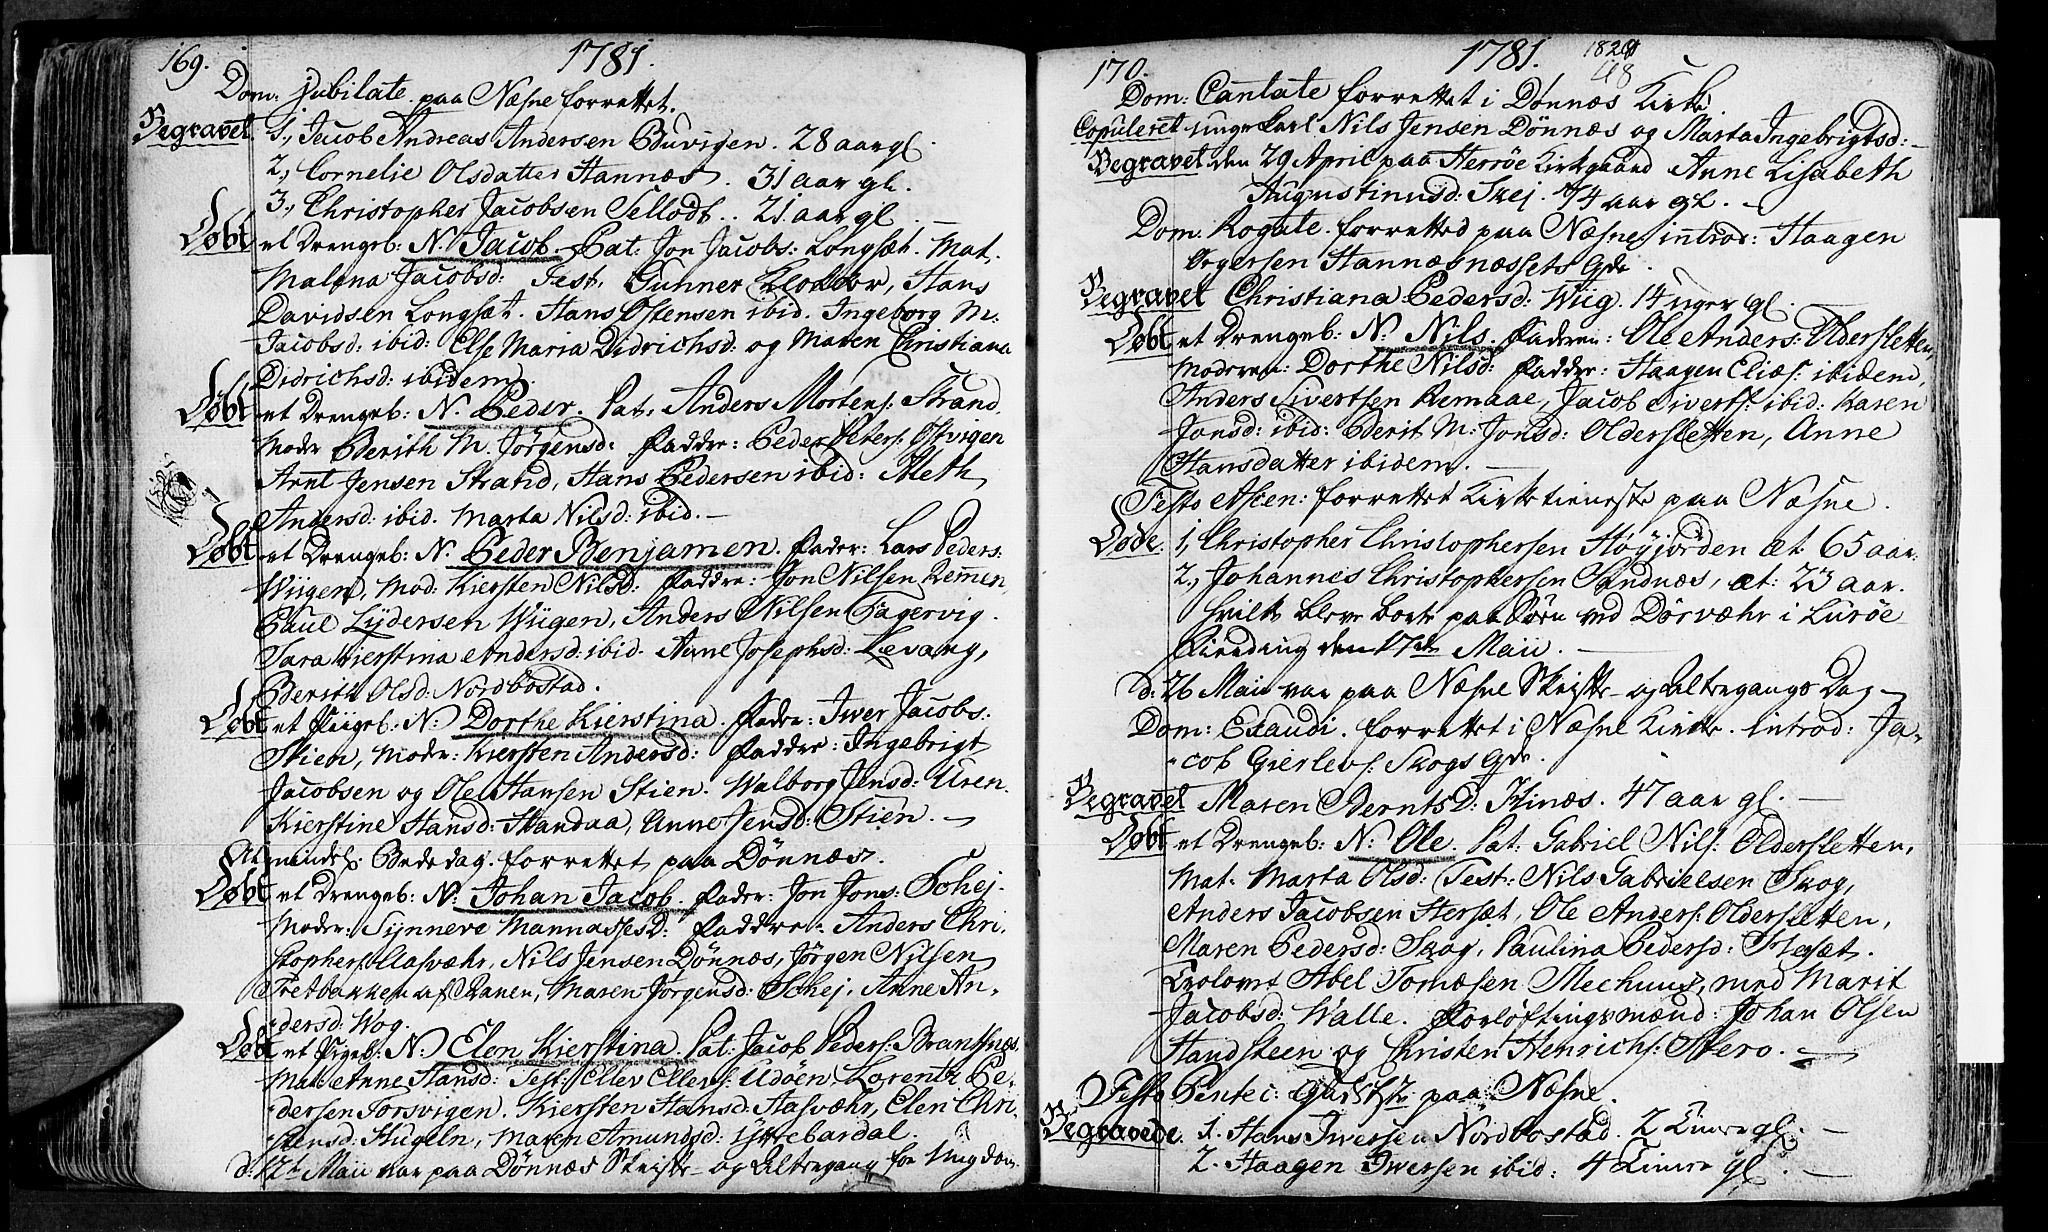 169. 1781.
Dom: Jubilate paa Næsne forrettet.
Begravet. 1, Jacob Andreas Andersen Buvigen. 28 aar gl.
2, Cornelie Olsdatter Hannæs. 31 aar gl.
3, Christopher Jacobsen Sellodt.. 21 aar gl.
Døbt et Drengeb: N. Jacob. Pat: Jon Jacobs: Longsæt. Mat.
Malena Jacobsd: Test, Gunner Klokker, Hans
Davidsen Longsæt. Hans Ostensen ibid. Ingeborg M:
Jacobsd: ibid: Else Maria Didrichsd: og Maren Christiana
Didrichsd: ibidem.
Døbt et Drengeb: N. Peder. Pat, Anders Mortens: Strand.
Moder Berith M. Jørgensd: Faddre: Peder Peters: Ostvigen
Arnt Jensen Strand, Hans Pedersen ibid: Meth
Andersd: ibid. Marta Nilsd: ibid. —
Døbt et Drengeb: N. Peder Benjamen. Fader: Lars Peders:
Wiigen, Mod. Kiersten Nilsd: Faddre: Jon Nilsen Remen,
Paul Lydersen Wiigen, Anders Nilsen Fagervig.
Sara Kierstina Andersd: ibid. Anne Josephsd: Levang,
Berith Olsd: Nordbostad.
Døbt et Piigeb: N: Dorthe Kierstina. Fader: Iwer Jacobs:
Stien, Moder: Kiersten Andersd: Faddre: Ingebrigt
Jacobsen og Ole Hansen Stien. Walborg Jensd: Uren.
Kierstine Hansd: Skandaa, Anne Jensd: Stien. —
Almindel: Bededag. forrettet paa Dönnæs.
Døbt et Drengeb: N: Johan Jacob. Fader: Jon Jons: Schej.
Moder: Synneve Mannassesd: Faddre: Anders Chri-
stophers: Aasvæhr, Nils Jensen Dønnæs, Jørgen Nilsen
Fretbakken af Ranen, Maren Jørgensd: Schej, Anne An-
dersd: Wog.
Døbt et Pigeb: N: Elen Kierstina Pat: Jacob Peders: Brantsnæs.
Mat. Anne Hansd: Test: Ellev Ellevs: Udöen, Lorentz Pe-
dersen Forsvigen. Kiersten Hansd: Aasvæhr, Elen Chri-
stensd: Hugeln, Maren Amundsd: Yttrebardal.
d: 12te Maii var paa Dönnæs Skrifte- og Altergang for Ungdom
170. 1781. 1820
48
Dom: Cantate forrettet i Dønnæs Kirke.
Copuleret unge Karl Nils Jensen Dønnæs og Marta Ingebrigtsd: —
Begravet den 29 April paa Herröe Kirkgaard Anne Lisabeth
Augustinusd: Skej. 4 aar gl. —
Dom. Rogate. forretted paa Næsne. introd: Haagen
Hannæsnæssets Gde.
Begravet Christiana Pedersd: Wiig. 14 uger gl. —
Døbt et Drengeb: N: Nils. Faderen: Ole Anders: Oldersletten,
Moderen: Dorthe Nilsd: Faddre: Haagen Elies: ibidem,
Anders Sivertsen Remaae, Jacob Siverts: ibid: Karen
Jonsd: ibid: Berit M: Jonsd: Oldersletten, Anne
Hansdatter ibidem. —
Festo Ascen: forrettet Kirketieneste paa Næsne.
Døde. 1, Christopher Christophersen Høyjorden æt. 65 aar.
2, Johannes Christophersen Sandnæs, æt: 23 aar.
hvilke bleve borte paa Søen ved Dørvæhr i Lurøe
Tinding den 17de Maii. —
d: 26 Maii var paa Næsne Skrifte- og Altergangs Dag —
Dom: Exaudi. forrettet i Næsne Kirke. introd: Ja-
cob Gierlevs: Skogs Gde.
Begravet Maren Berntsd: Zinæs. 47 aar gl. —
Døbt et Drengeb: N: Ole. Pat: Gabriel Nils: Oldersletten,
Mat. Marta Olsd: Test: Nils Gabrielsen Skog,
Anders Jacobsen Hersæt, Ole Anders: Oldersletten,
Maren Pedersd: Skog, Paulina Pedersd:
Trolovet Abel Tomæsen Mechuus, med Marit
Jacobsd: Walle. Forløftingsmænd: Johan Olsen
Handsteen og Christen Henrichs: Skero. —
Festo Pentec: paa Næsne.
Begravede. 1. Hans Iwersen Nordbostad. 2 Timer gl. —
2. Haagen Iwersen ibid: 4 Timer gl. —